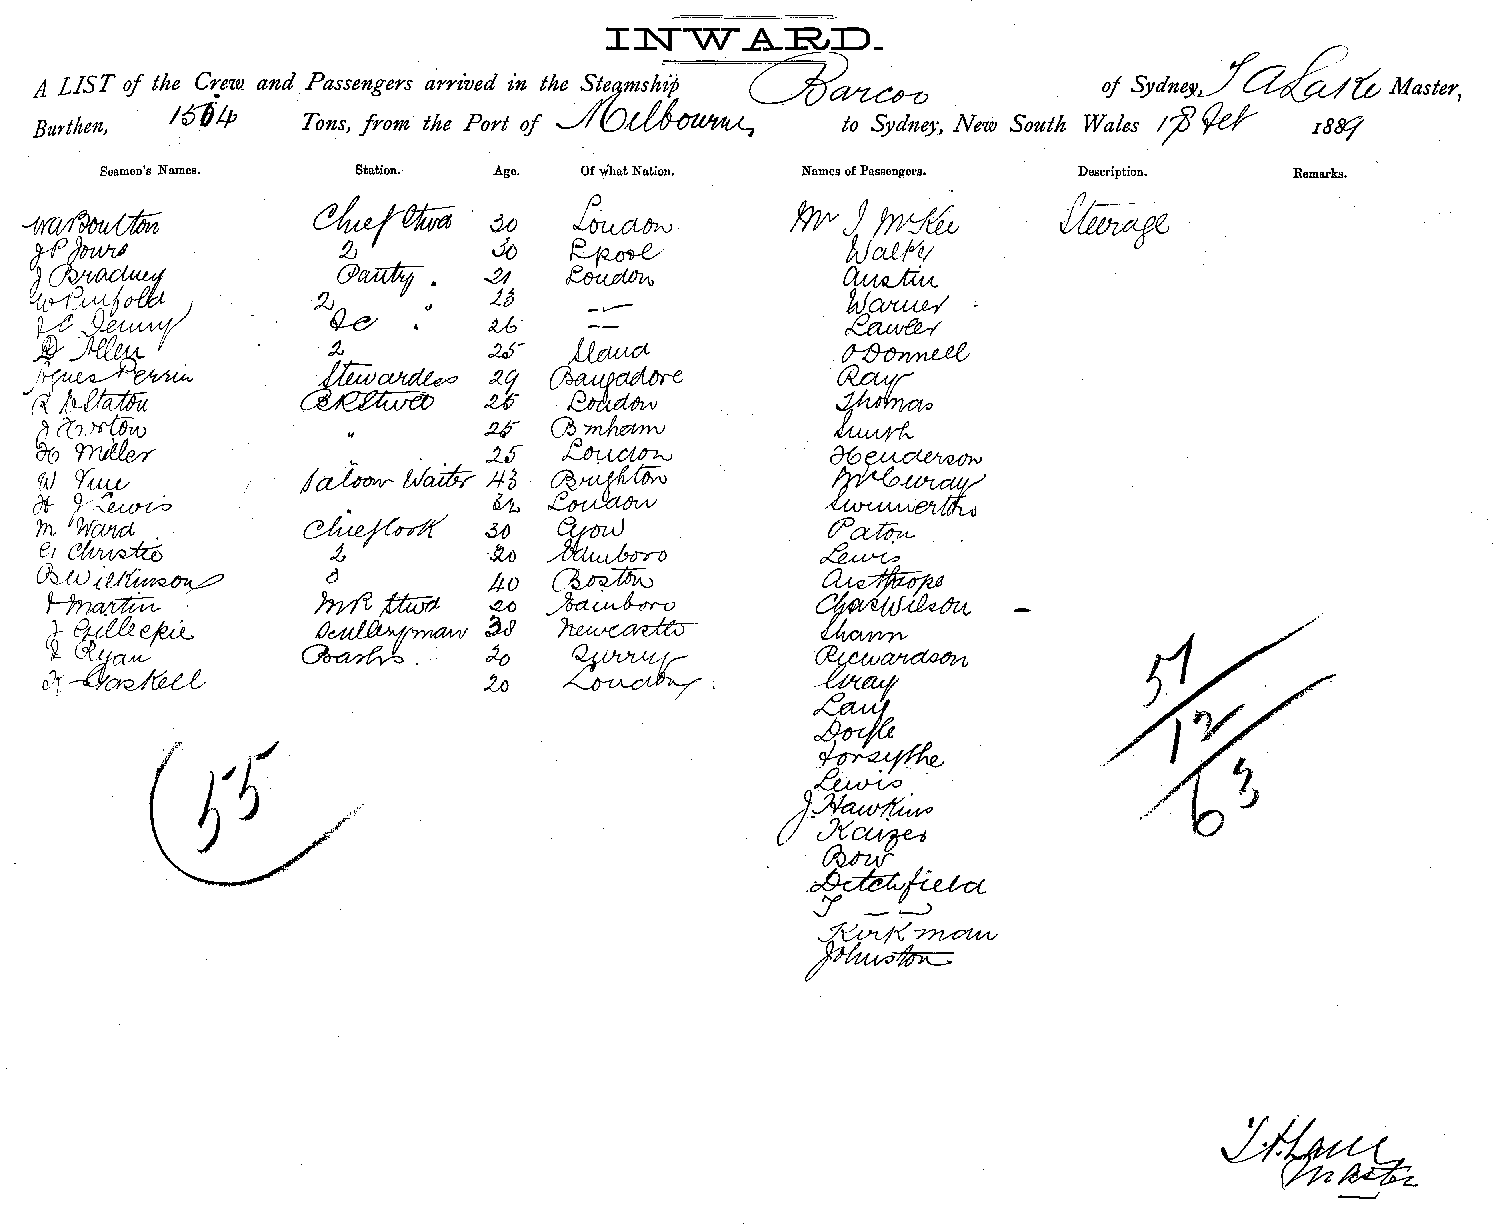 INWARD.
A LIST of the Crew and Passengers arrived in the Steamship Barcoo of Sydney, T A Lake Master,
Burthen, 1504 Tons, from the Port of Melbourne, to Sydney, New South Wales 18 Feb 1889
Seamen's Names. Station. Age. Of what Nation. Names of Passengers. Description. Remarks.
W A Boulton Chief Stwd 30 London Mr J McKee Steerage
J P Jours 2 30 L'pool Walker
J Bradney Pantry . 21 London Austin
W Pinfold 2 " 23 — Warner
J C Denny 26 — Lawler
D Allen 2 25 Oo'Donnell
Agnes Perrin Stewardess 29 Bangadore Ray
R H Staton Stwd 25 London Thomas
J " 25 B'mham Smith
H Miller " 25 London Henderson
W Vine Saloon Waiter 43 Brighton
H J Lewis 32 London Swinnerton
M Ward Chief Cook 30 Paton
G Christie 2 20 Edinboro Lewis
B Wilkinson 3 40 Boston
J Martin MR Stwd 20 Edinboro Chas Wilson –
J Gillespie Scullery man 38 Newcastle Shann
J Ryan 20 Surrey Richardson
H Gaskell 20 London Gray
Lang
Doyle
Forsythe
Lewis
J. Hawkins
Kaizer
Bow
Ditchfield
J — —
Kirkman
Johnston
51
12
63
(55
Master